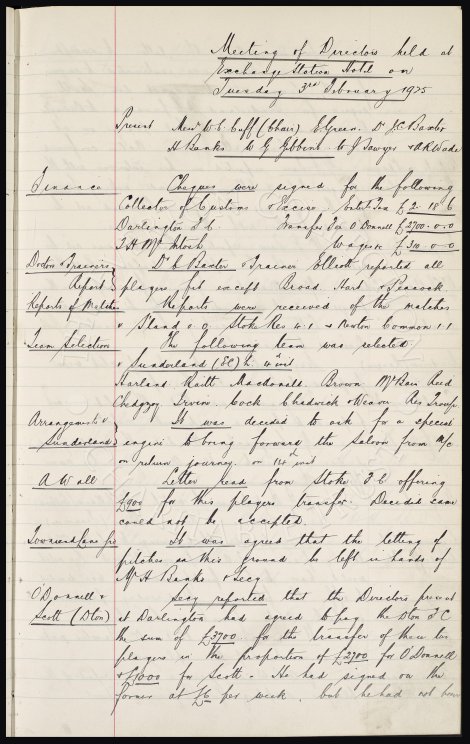 Meeting of Directors held at
Exchange Station Hotel on
Tuesday 3rd February 1925
Present Messrs W. C. Cuff (Chair) E Green. Dr J C Baxter
H Banks W G Gibbins W J Sawyer & A R Wade
Finance Cheques were signed for the following
Collector of Customs & Excise Entert Tax £2. 18. 6
Darlington F. C. Transfer Fee O'Donnell £2700.0.0
T. H. McIntosh Wages &c £310.0.0
Doctor & Trainers Dr Baxter & Trainer Elliott reported all
Report players fit except Broad Hart & Peacock
Reports of Matches Reports were received of the matches
v 0.0 Stoke Res 4.1 v Newton Common 1.1
Team Selection The following team was selected.
v Sunderland (EC) h. 4th inst
Harland Raitt Macdonald Brown McBain Reid
Chedgzoy Irvine Cock Chadwick & Weaver Res Troup
Arrangements v It was decided to ask for a special
Sunderland engine to bring forward the saloon from M/c
on return journey. on 14th inst
A Wall Letter read from Stoke F. C offering
£900 for this players transfer. Decided same
could not be accepted.
Townsend Lane Grd It was agreed that the letting of
pitches on this ground be left in hands of
Mr H Banks & Secy
O'Donnell & Secy reported that the Directors present
Scott (Dton) at Darlington had agreed to pay the Dton F C
the sum of £3700. for the transfer of these two
players in the proportion of £2700 for O'Donnell
& £1000 for Scott. He had signed on the
former at per week. but he had not been